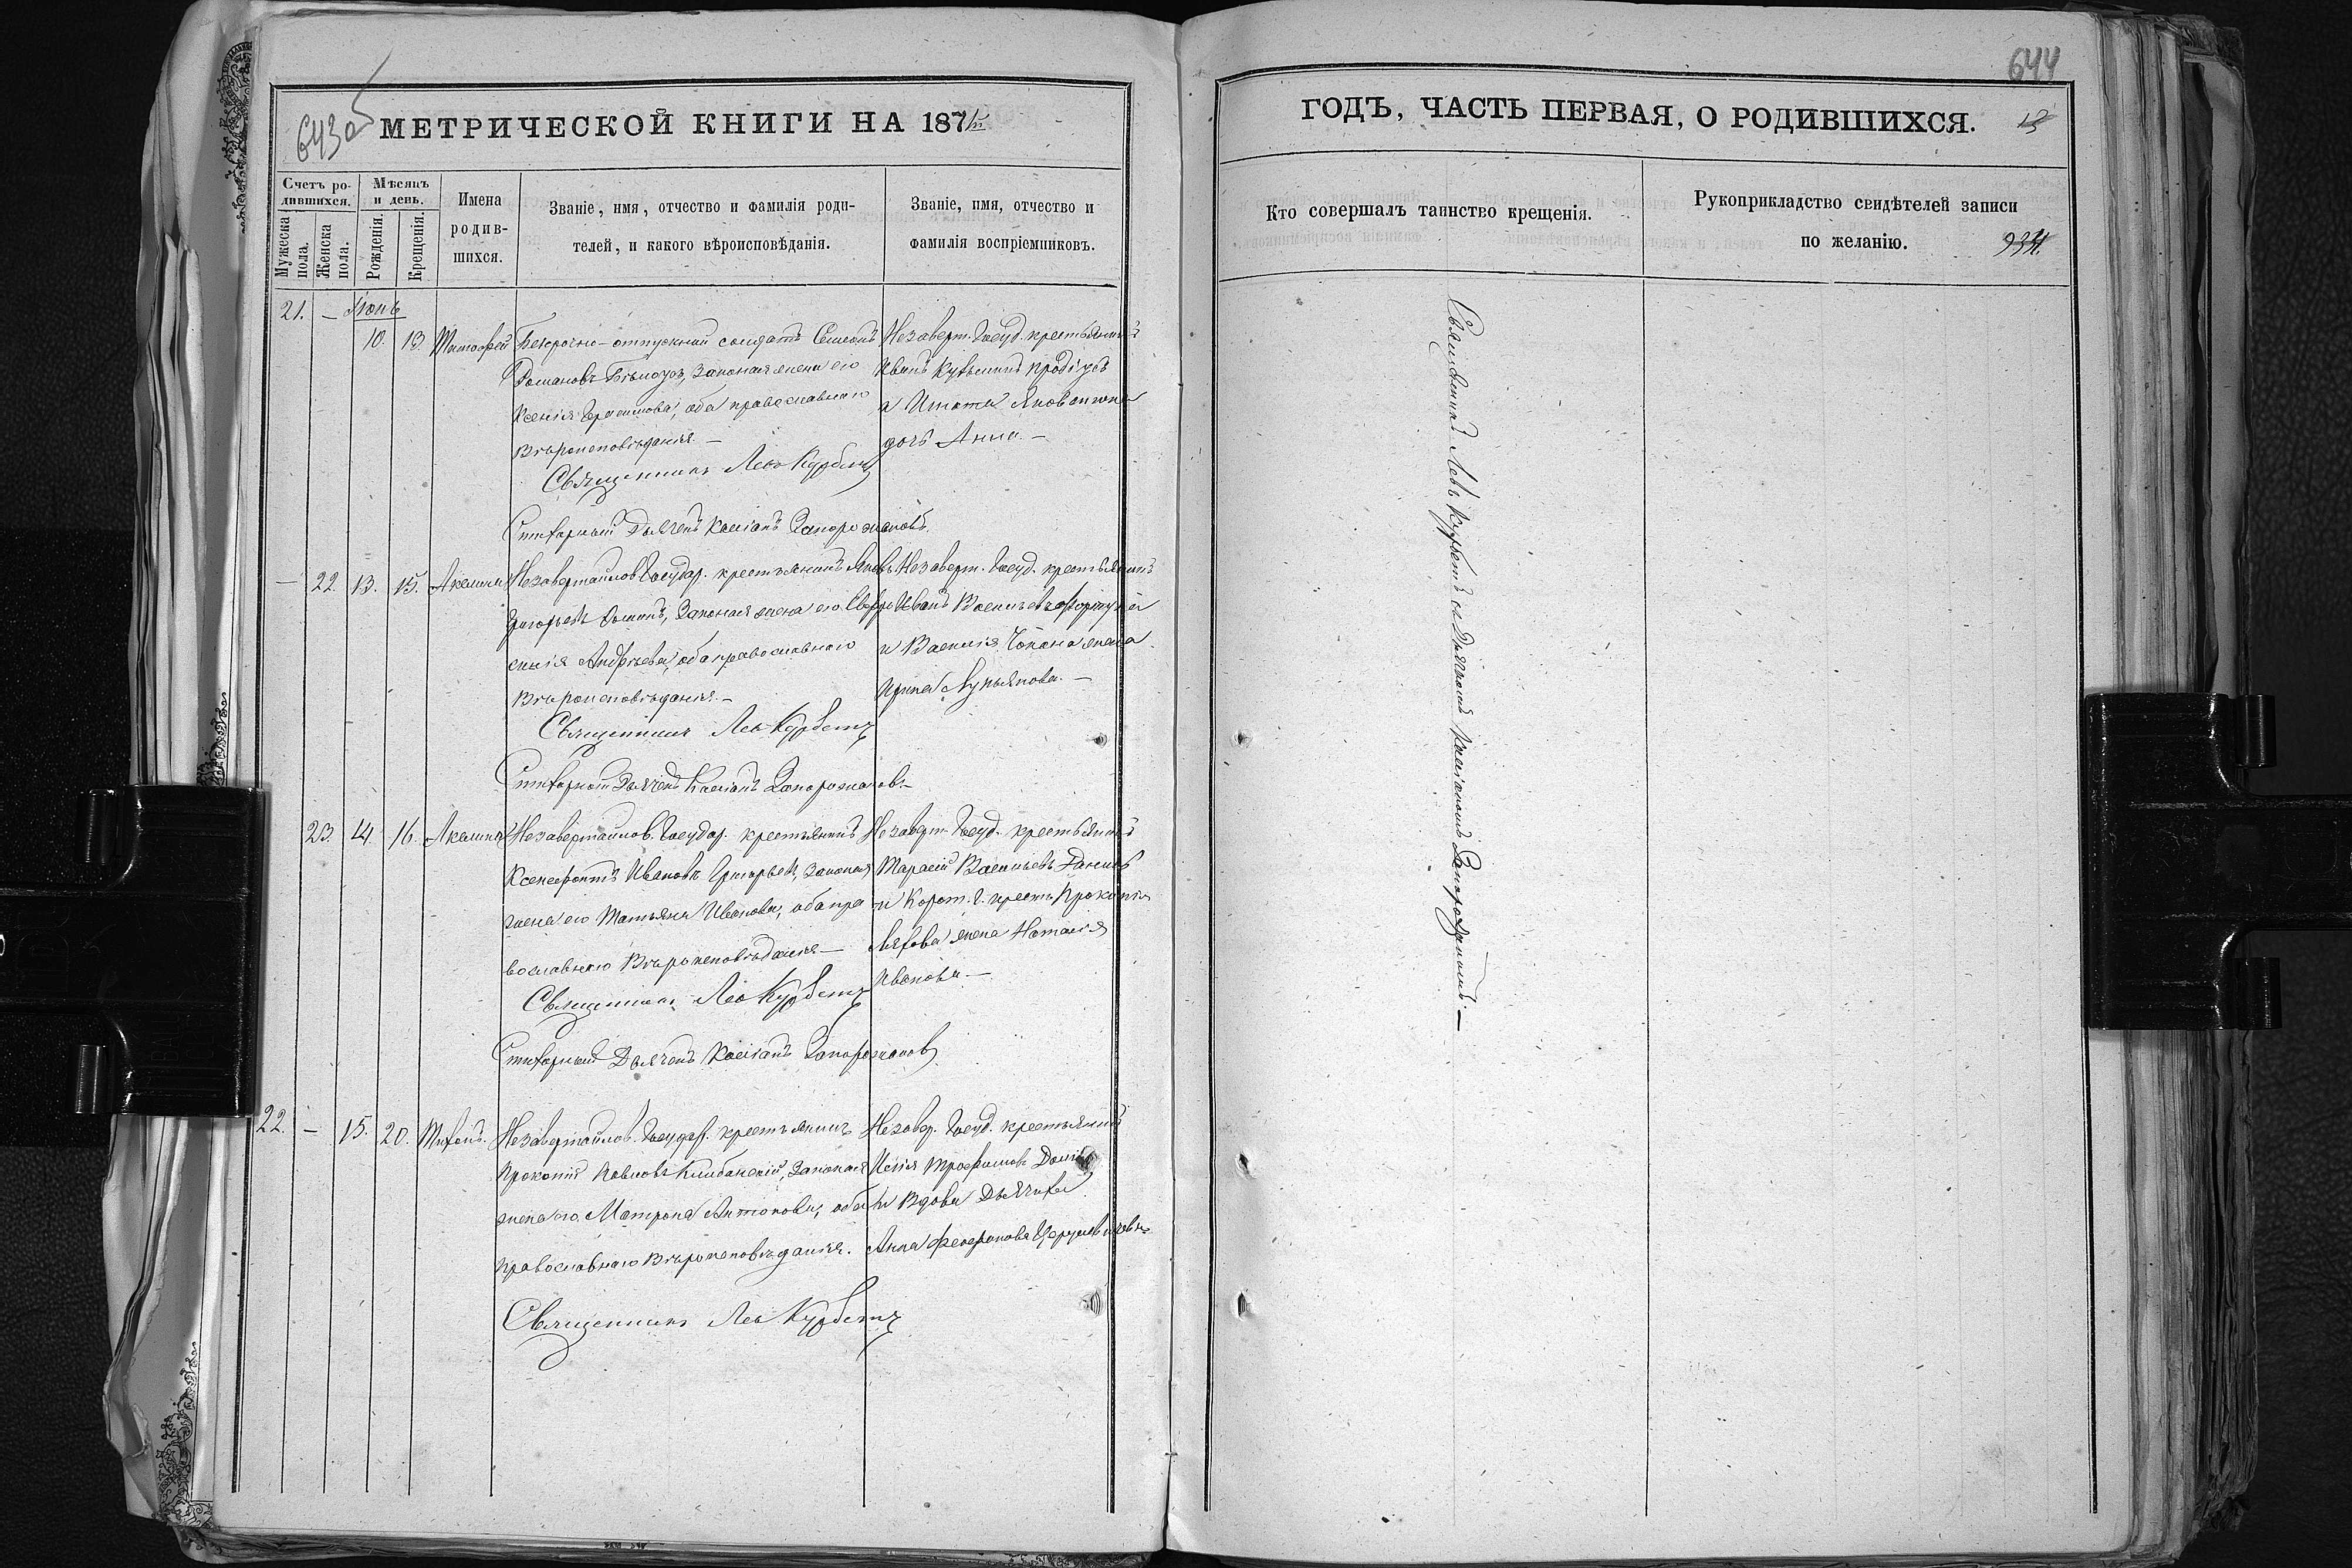 643об
МЕТРИЧЕСКОЙ КНИГИ НА 187
Счетъ родившихся.
Мѣсяцъ и день.
Мужеска пола.
Женска пола.
Рожденія.
Крещенія.
Имена родившихся.
Званіе, имя, отчество и фамилія родителей, и какого вѣроисповѣданія.
Званіе, имя, отчество и фамилія воспріемниковъ.
21. — Іюнь
10. 13. Тимофей Безсрочно-отпускный солдатъ Семеонъ
Романовъ законная жена его
Ксенія Герасимова, оба православнаго
Вѣроисповѣданія. —
Священникъ Лев Курбетъ
Стихарный Дьячекъ Касіанъ Запорожановъ.
Незаверт. Госуд. крестьянинъ
Иванъ Кузьминъ
и Игната Яковлиена
дочь Анна. —
— 22. 13. 15. Акелина Незавертайлов. Государ. крестьянинъ Яковъ
Григорьевъ законная жена его Евфро
синія Андреева, оба православнаго
Вѣроисповѣданія. —
Священникъ Лев Курбетъ
Стихарный Дьячекъ Касіанъ Запорожанов. —
Незаверт. Госуд. крестьянинъ
Иванъ Васильевъ
и Василія Чобана жена
Ирина Лукьянова. —
23. 14. 16. Акелина Незавертайлов. Государ. крестьянинъ
Ксенофонтъ Ивановъ Григорьев, законная
жена его Татьяна Иванова, оба пра
вославнаго Вѣроисповѣданія —
Священникъ Лев Курбетъ
Стихарный Дьячекъ Касіанъ Запорожанов
Незаверт. Госуд. крестьянинъ
Тарасій Васильевъ
и Корот. Г. крест. Прокопія
жена Наталія
Иванова. —
22. — 15. 20. Тихонъ. Незавертайлов. Государ. крестьянинъ
Прокопій Павловъ законная
жена его Матрона Антонова, оба
православнаго Вѣроисповѣданія.
Священникъ Лев Курбетъ
Незавер. Госуд. крестьянинъ
Исаія Трофимовъ
и Вдова Дьячиха
Анна
644
ГОДЪ, ЧАСТЬ ПЕРВАЯ, О РОДИВШИХСЯ.
Кто совершалъ таинство крещенія.
Рукоприкладство свидѣтелей записи по желанію.
Священникъ Левъ Курбетъ съ Дьячкомъ Касіаномъ Запорожаномъ. —